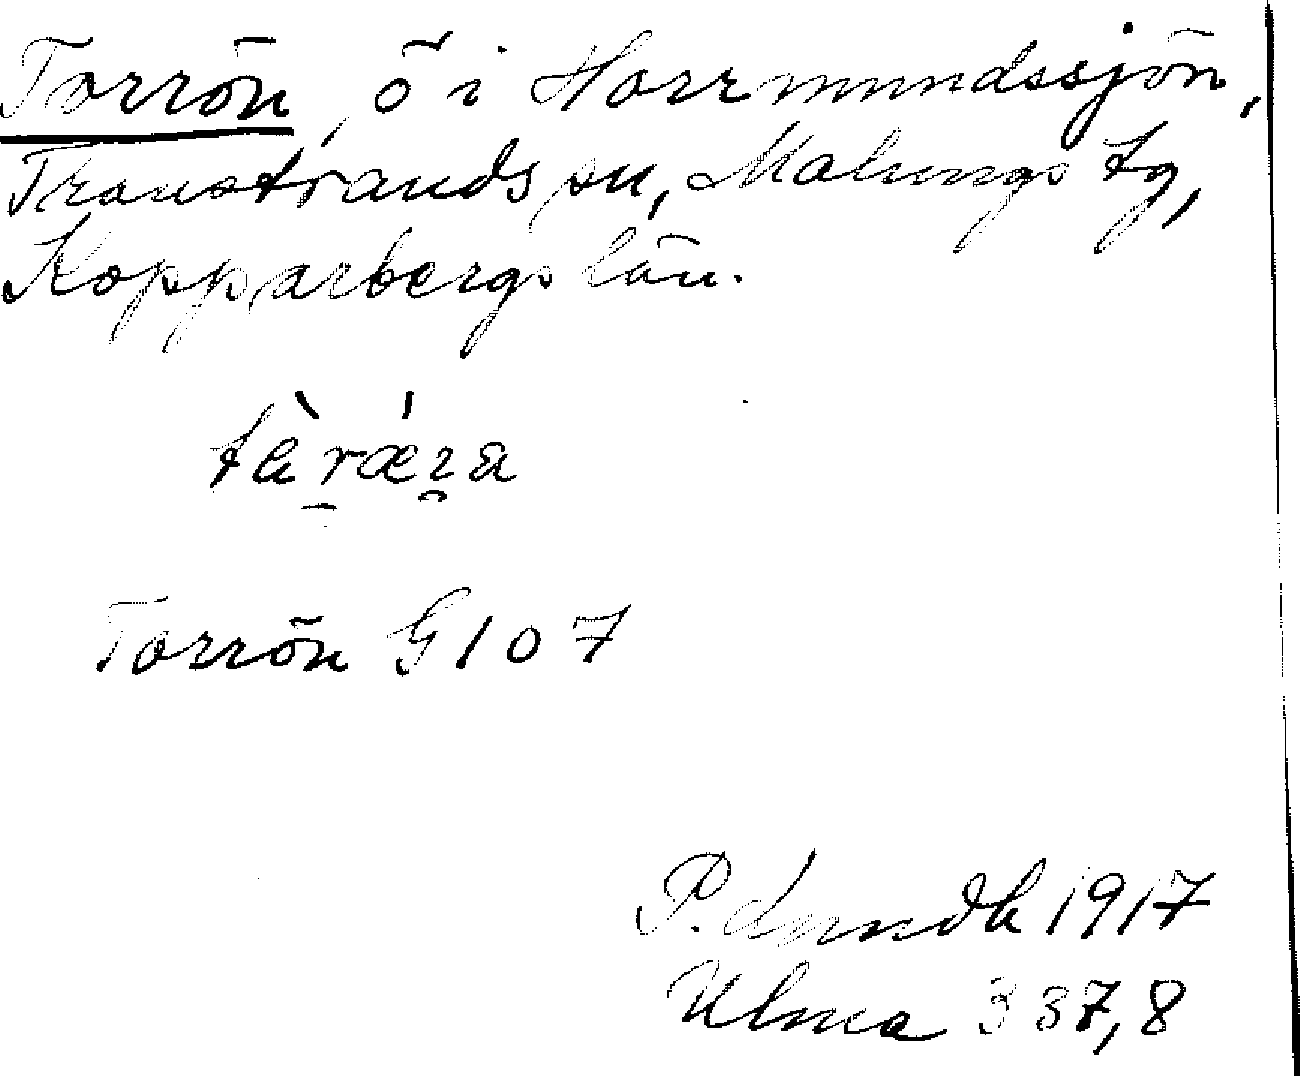 Torrön, ö i Horrmundssjön,
Transtrands sn, Malungs tg,
Kopparbergs län.
Torrön G 107
P. Lundk 1917
Ulma 337,8